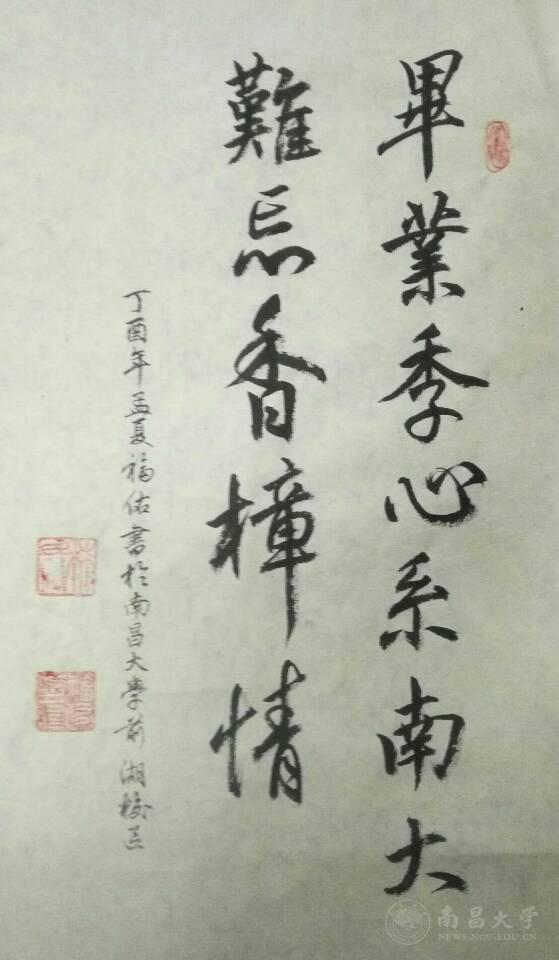 畢業季心系南大
難忘香樟情
丁酉年孟夏福佑書於南昌大學前湖校区
南昌大学
NEWS.NCU.EDU.CN